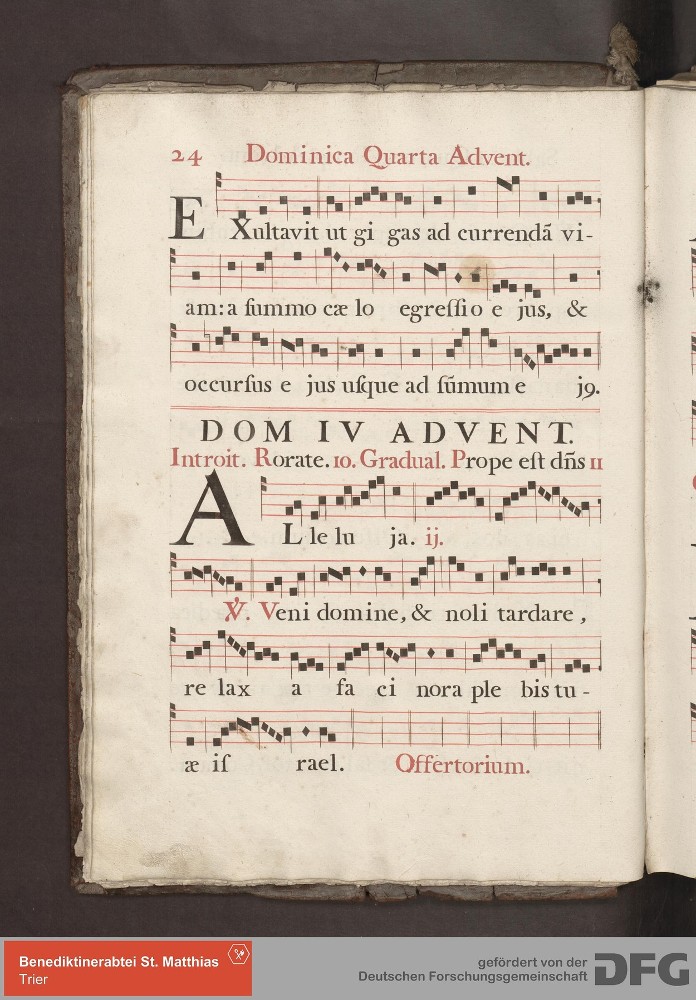 24 Dominica Quarta Advent.
EXultavit ut gi gas ad currendã vi-
am: a ſummo cæ lo egreſſi o e jus, &
occurſus e jus uſque ad ſũmum e jꝯ.
DOM IV ADVENT.
Introit. Rorate. 10. Gradual. Prope eſt dñs 11
AL le lu ja. ij.
℣. Veni domine, & noli tardare,
re lax a fa ci nora ple bis tu-
æ iſ rael. Offertorium.
Benediktinerabtei St. Matthias
Trier
gefördert von der
Deutschen Forschungsgemeinschaft DFG